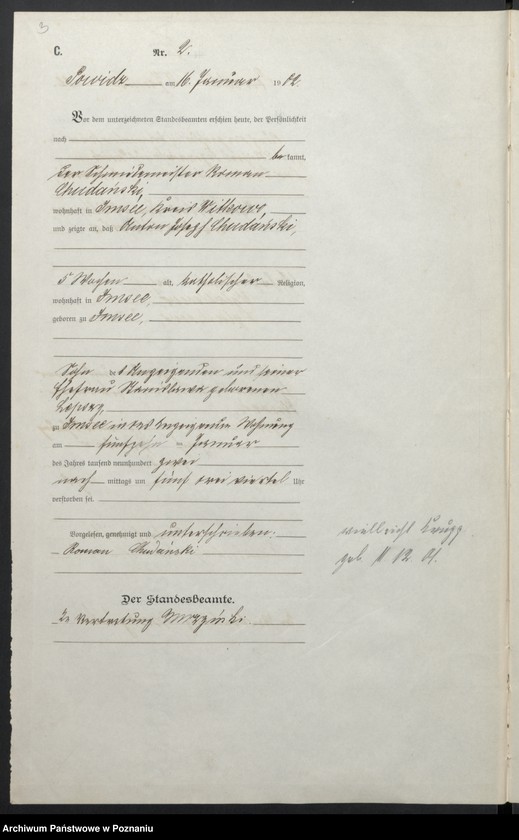 3
C.
Nr. 2.
Powidz am 16. Januar 1902
Vor dem unterzeichneten Standesbeamten erschien heute, der Persönlichkeit
nach
bekannt,
der Schmiedemeister Roman
Chudański,
wohnhaft in Imsee, Kreis Witkowo,
und zeigte an, daß Anton Joseph Chudański,
5 Wochen alt, katholischer Religion,
wohnhaft in Imsee,
geboren zu Imsee,
Sohn des Anzeigenden und seiner
Ehefrau Stanislawa geborenen
zu Imsee in des Anzeigenden Wohnung
am fünfzehn Januar
des Jahres tausend neunhundert zwei
nach mittags um fünf drei viertel Uhr
verstorben sei.
Vorgelesen, genehmigt und unterschrieben.
Roman Chudański
Der Standesbeamte.
In Vertretung
vielleicht
geb 11 12 01.
Archiwum Państwowe w Poznaniu